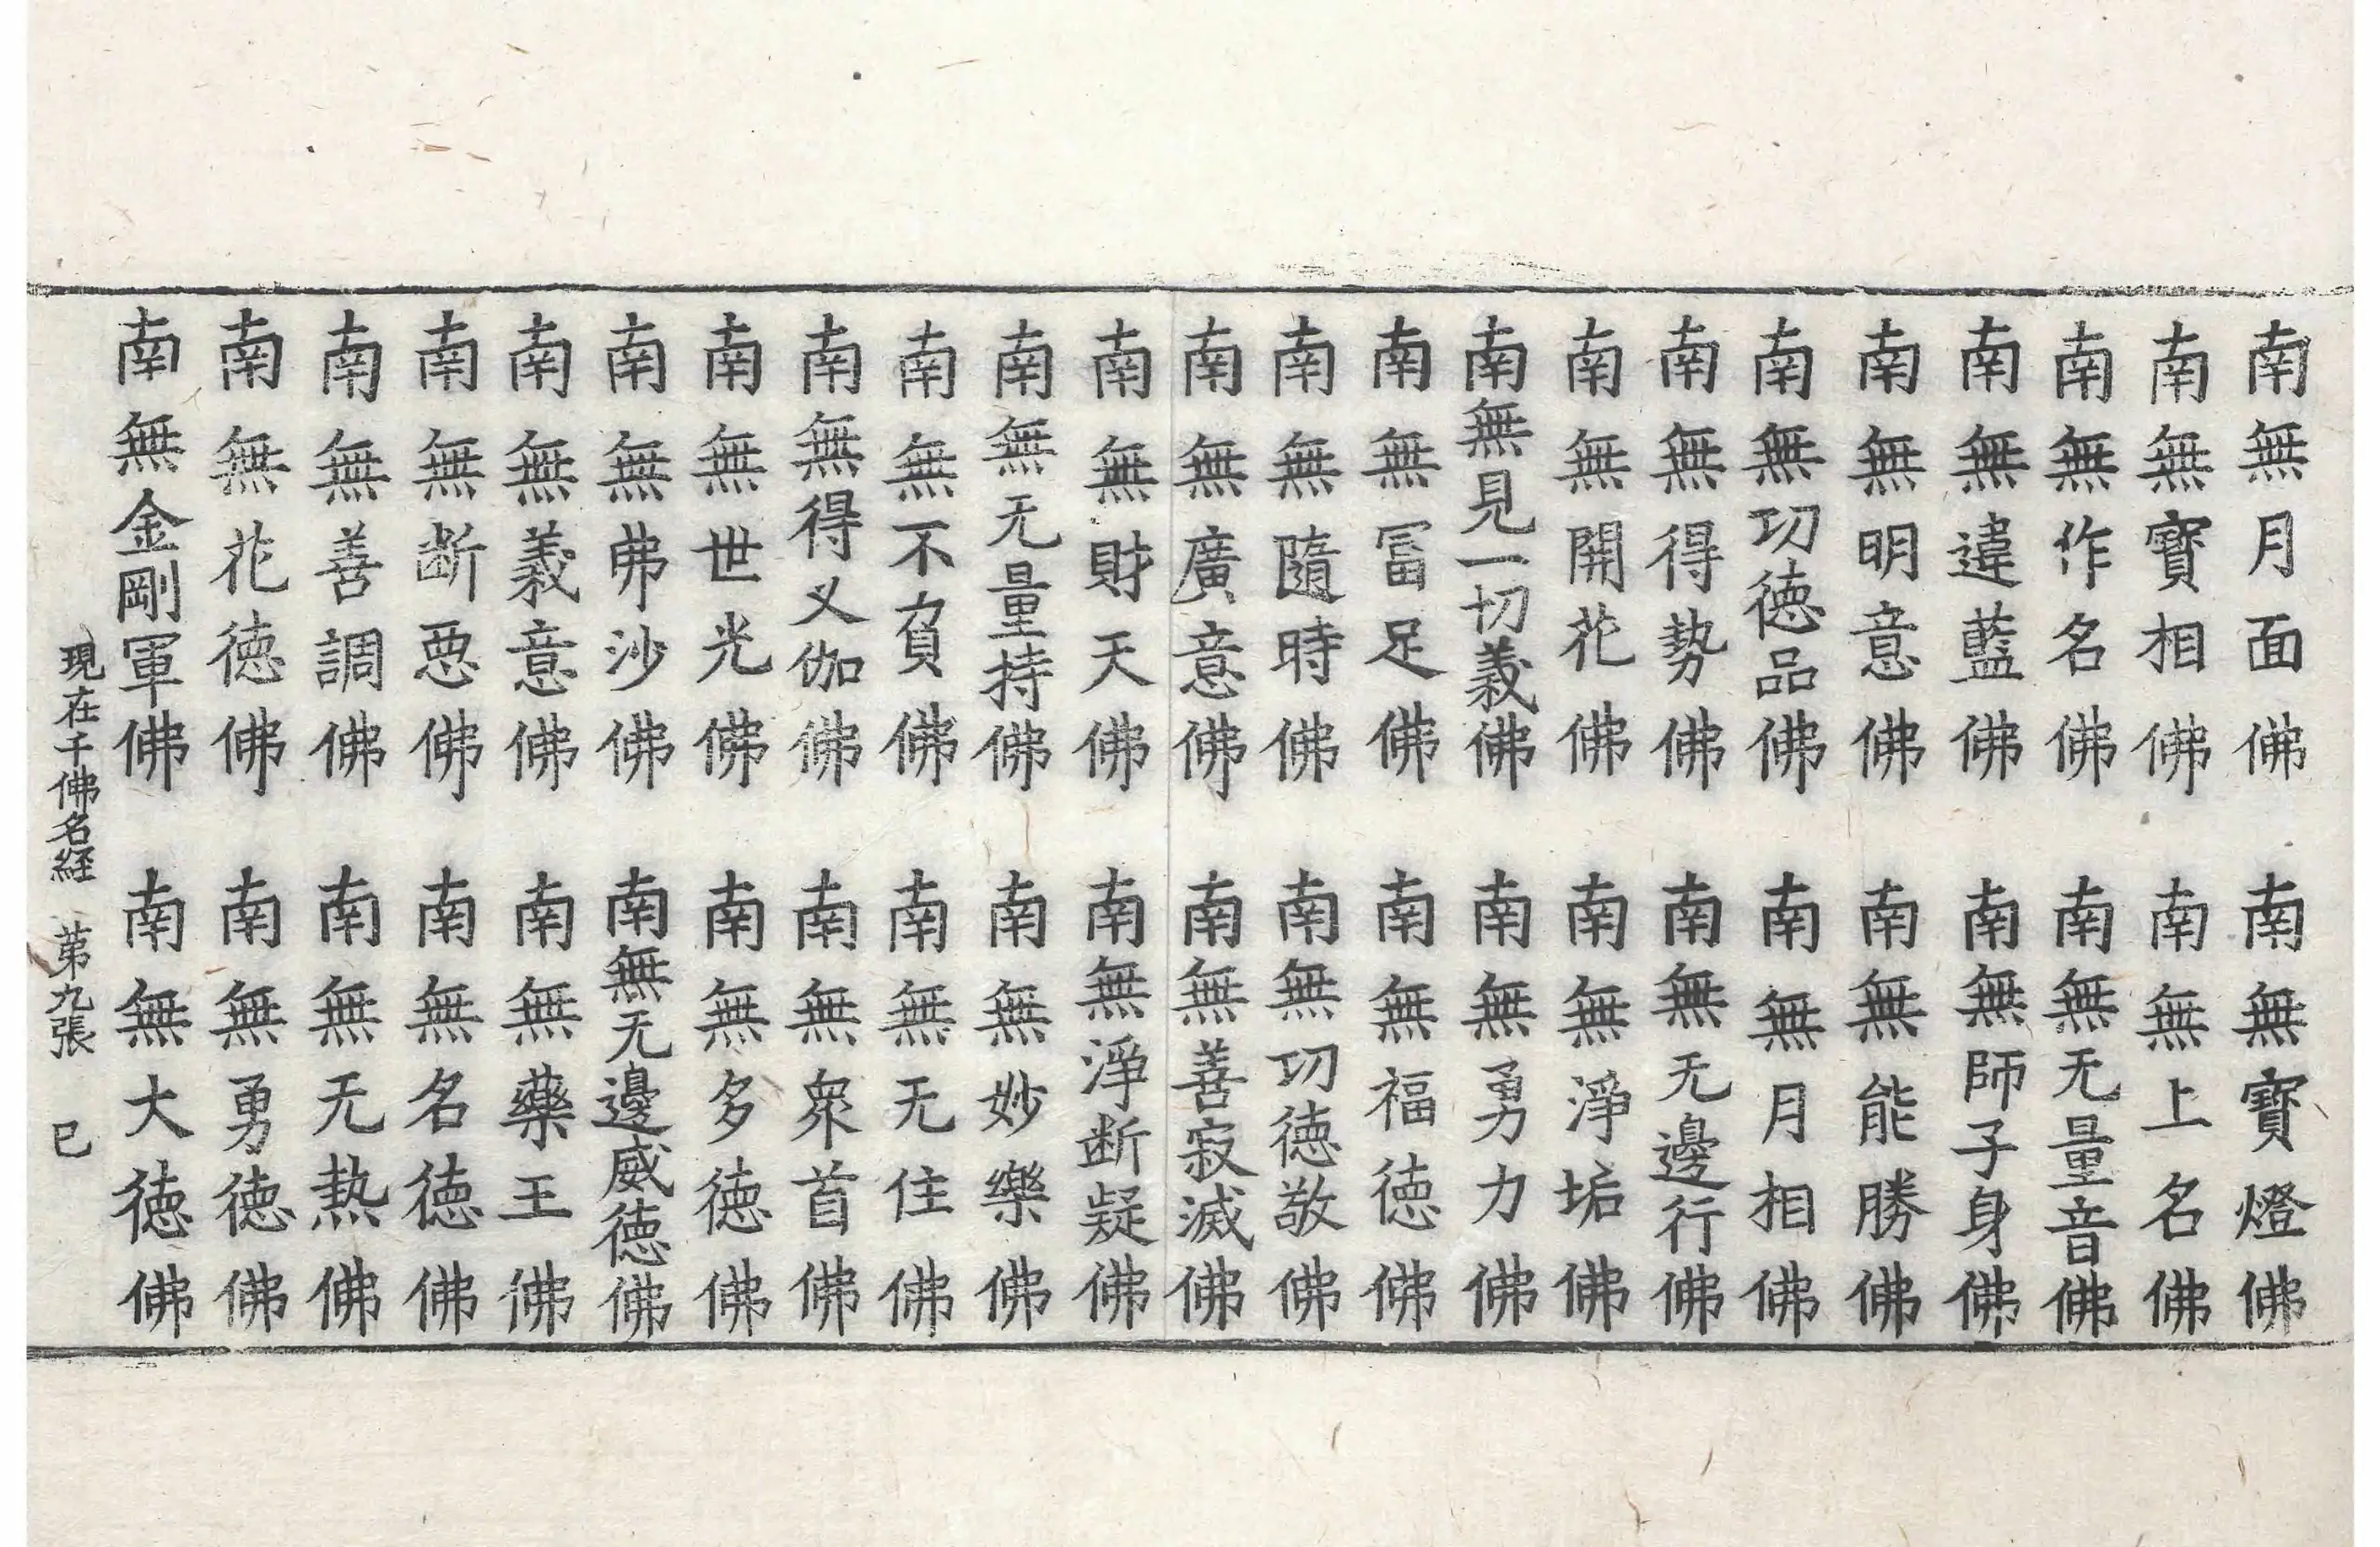 南無月面佛 南無寶燈佛
南無寶相佛 南無上名佛
南無作名佛 南無无量音佛
南無違藍佛 南無師子身佛
南無明意佛 南無能勝佛
南無功德品佛 南無月相佛
南無得勢佛 南無无邊行佛
南無開花佛 南無淨垢佛
南無見一切義佛 南無勇力佛
南無冨足佛 南無福德佛
南無隨時佛 南無功德敬佛
南無廣意佛 南無善寂滅佛
南無財天佛 南無淨断疑佛
南無无量持佛 南無妙樂佛
南無不負佛 南無无住佛
南無得叉伽佛 南無衆首佛
南無世光佛 南無多德佛
南無弗沙佛 南無无邊威德佛
南無義意佛 南無藥王佛
南無断惡佛 南無名德佛
南無善調佛 南無无热佛
南無花德佛 南無勇德佛
南無金剛軍佛 南無大德佛
現在千佛名経 苐九張 已